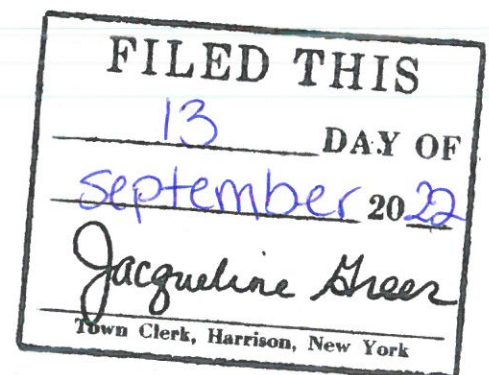 FILED THIS
13 DAY OF
September 2022
Jacqueline Greer
Town Clerk, Harrison, New York